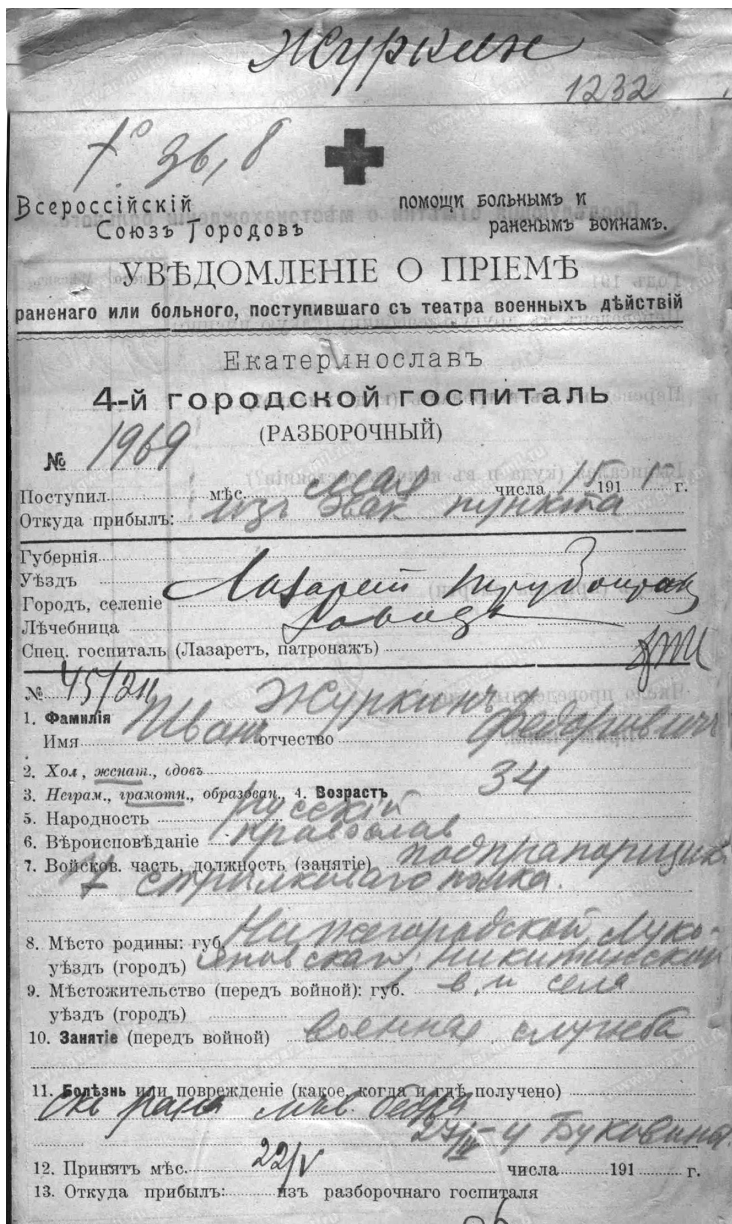 Журкин
1232
t° 36,8
Всероссійскій помощи больнымъ и
Союзъ Городовъ раненымъ воинамъ.
УВѢДОМЛЕНІЕ О ПРІЕМѢ
раненаго или больного, поступившаго съ театра военныхъ дѣйствій
Екатеринославъ
4-й городской госпиталь
(РАЗБОРОЧНЫЙ)
№ 1969
Поступил мѣс. числа 191 5 г.
Откуда прибылъ: изъ Эвак пункта
Губернія
Уѣздъ
Городъ, селеніе Лазарет Трубопрок
Лѣчебница Заводъ
Спец. госпиталь (Лазаретъ, патронажъ)
№ 45/211 Журкинъ
1. Фамилія
Имя Иванъ отчество Федоровичъ
2. Хол, женат., вдовъ
3. Неграм., грамотн., образован, 4. Возрастъ 34
5. Народность русскій
6. Вѣроисповѣданіе православ
7. Войсков. часть, должность (занятіе) подпрапорщик
7 стрѣлковаго полка.
8. Мѣсто родины: губ. Нижегородской Луко-
уѣздъ (городъ) яновская Никитинской
9. Мѣстожительство (передъ войной): губ. в. и села
уѣздъ (городъ)
10. Занятіе (передъ войной) военная служба
11. Болѣзнь или поврежденіе (какое, когда и гдѣ получено)
рана лѣв. бедра
у Буковина
12. Принятъ мѣс. 22/V числа 191 г.
13. Откуда прибылъ: изъ разборочнаго госпиталя